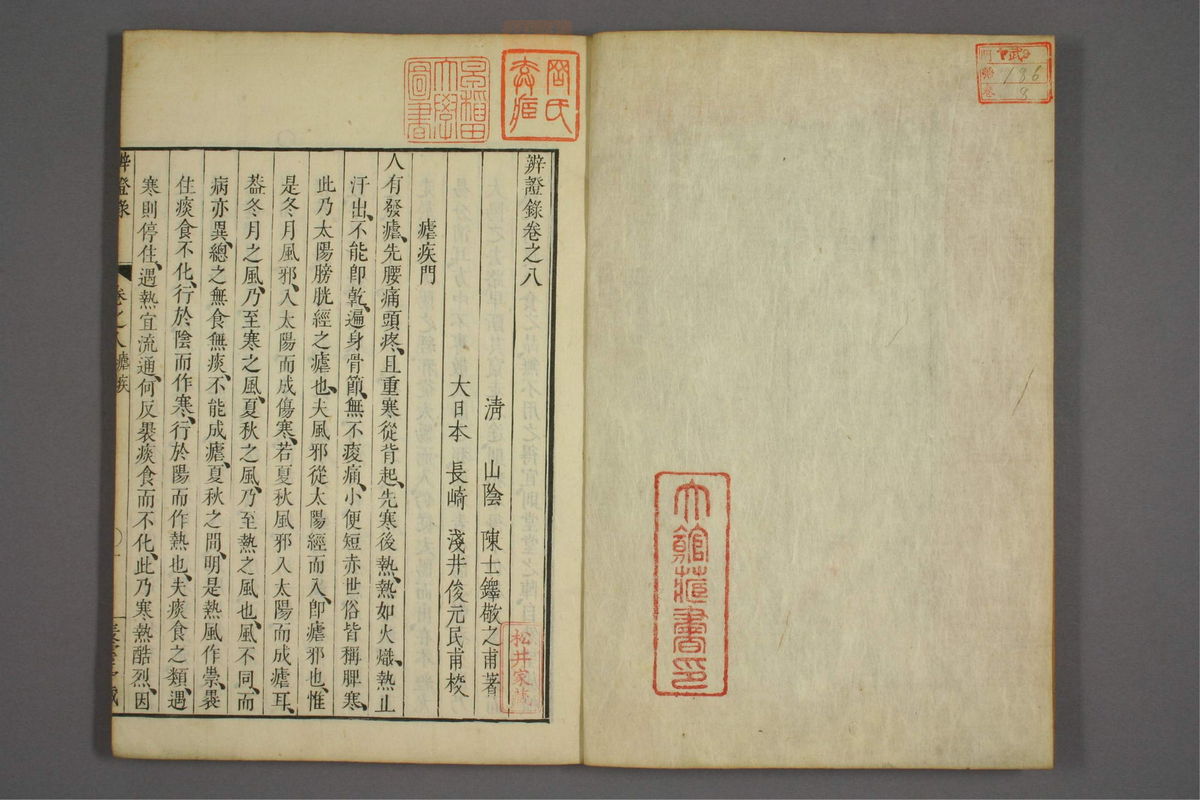 武
136
3
辨證錄卷之八
清 山陰 陳士鐸敬之甫著
大日本 長崎 淺井俊元民甫校
瘧疾門
人有發瘧、先腰痛頭疼、且重寒從背起、先寒後熱、熱如火熾、熱止
汗出、不能卽乾、遍身骨節、無不痠痛、小便短赤世俗皆稱脾寒、
此乃太陽膀胱經之瘧也、夫風邪從太陽經而入、卽瘧邪也、惟
是冬月風邪、入太陽而成傷寒、若夏秋風邪入太陽而成瘧耳、
葢冬月之風、乃至寒之風、夏秋之風、乃至熱之風也、風不同、而
病亦異、總之無食無痰、不能成瘧、夏秋之間、明是熱風作祟、褁
住痰食不化、行於陰而作寒、行於陽而作熱也、夫痰食之類、遇
寒則停住、遇熱宜流通、何反褁痰食而不化、此乃寒熱酷烈、因
辨證錄 卷之八 瘧疾
早稲田大學圖書
松井家藏
大館藏書印